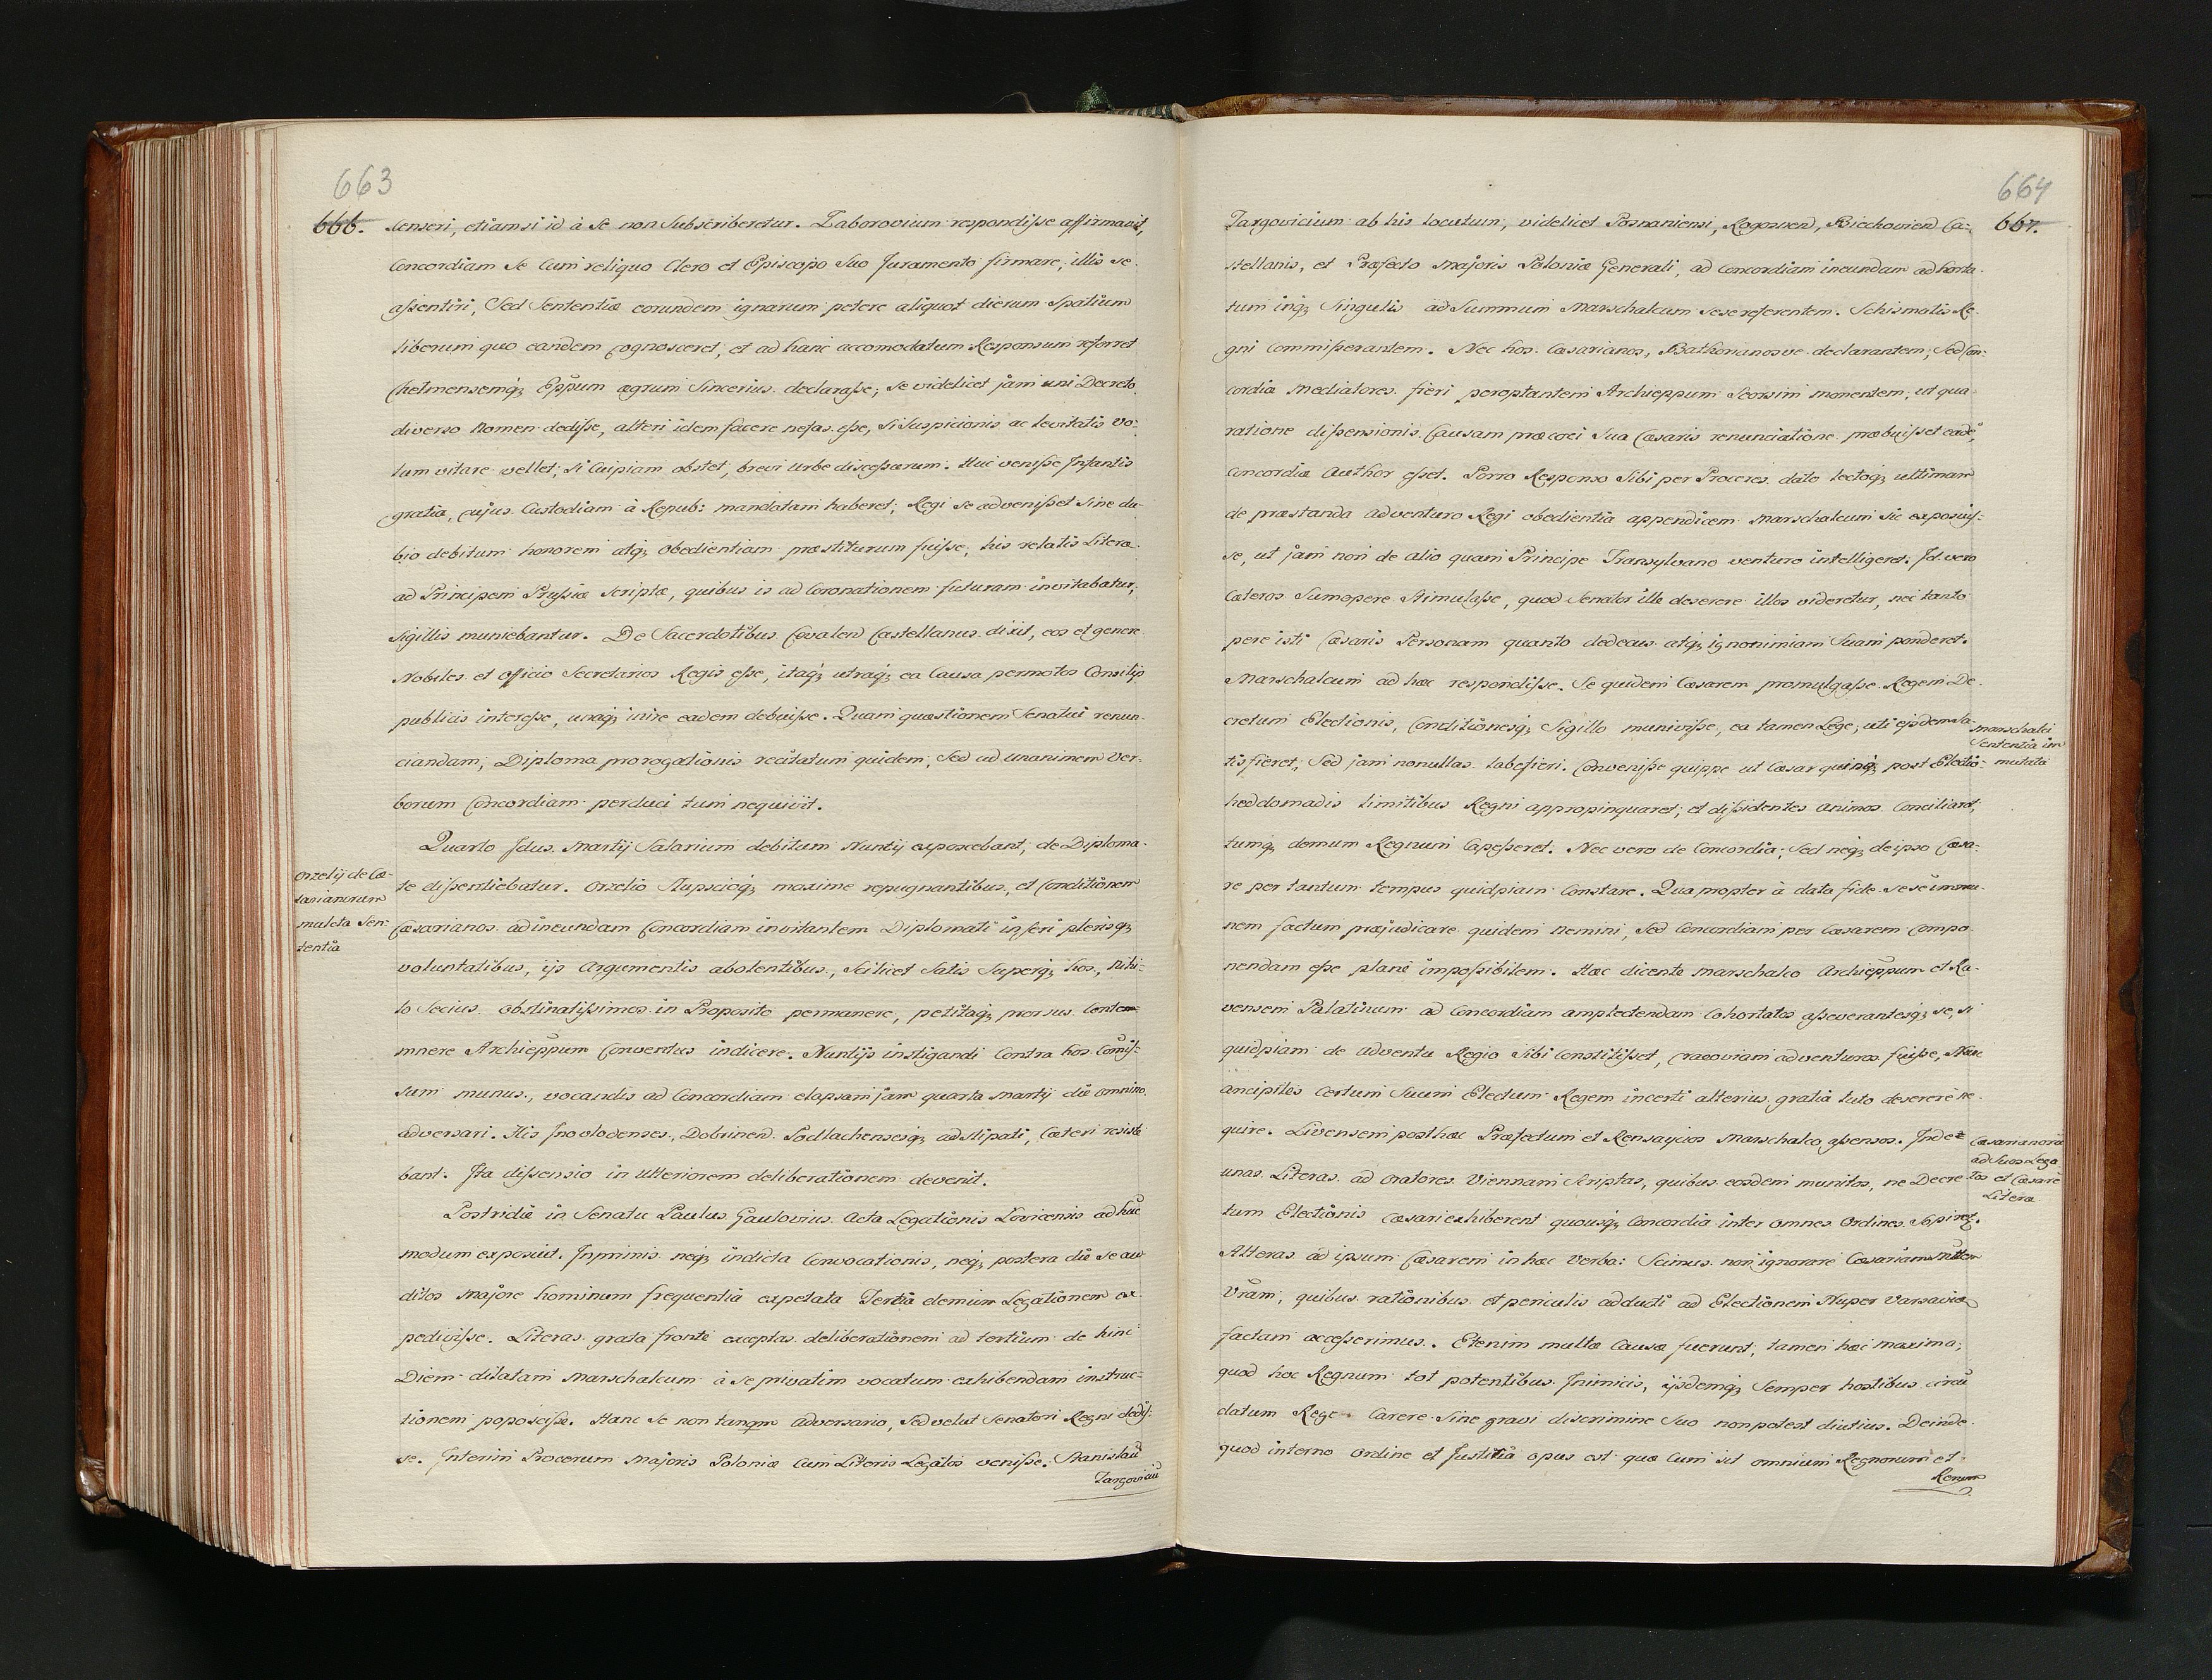 663
666.
senseri, etiamsi id à se non Subscriberetur. Zaborovium respondisse affirmavit,
Concordiam se Cum reliquo Clero et Episcopo Suo Juramento firmare, illis se
assentiri, Sed Sententiæ eorundem ignarum petere aliquot dierum Spatium
liberum quo eandem cognosceret, et ad hanc accomodatum Responsum referret
Chelmensemq; Eppum ægrum Sincerius declarasse; se videlicet jam uni Decreto
diverso Nomen dedisse, alteri idem facere nefas esse, Si Suspicionis ac levitatis no-
tam vitare vellet; Si Cuipiam obstet, brevi Urbe discessurum. Huc venisse Infantis
gratia, cujus Custodiam à Repub: mandatam haberet; Regi se advenisset Sine du-
bio debitum honorem atq; Obedientiam præstiturum fuisse; his relatis Litera
ad Principem Prussiæ Scriptæ, quibus is ad Coronationem futuram invitabatur,
Sigillis muniebantur. De Sacerdotibus Covalen Castellanus dixit, eos et genere
Nobiles et Officio Secretarios Regis esse, itaq; utraq; ea Causa permotos Consilijs
publicis interesse, unaq; inire eadem debuisse. Quam quæstionem Senatui renun-
ciandam; Diploma prorogationis recitatum quidem; Sed ad Unanimem Ver-
borum Concordiam perduci tum nequivit.
Quarto Idus Martij Salarium debitum Nuntij exposcebant, de Diploma-
te dissentiebatur. Orzelio Slupscioq; maxime repugnantibus, et Conditionem
Cæsarianos ad ineundam Concordiam invitantem Diplomati inseri plerisq;
voluntatibus, ijs Argumentis abolentibus, Scilicet Satis Superq; hos, nihi-
lo Secius obstinatissimos in Proposito permanere, petitaq; prorsus Contem-
mnere Archieppum Conventus indicere. Nuntijs instigandi Contra hos Comis-
sum munus, vocandis ad Concordiam elapsam jam quarta Martij die omnino
adversari. His Inovlodenses, Dobrinen Podlachensesq; adstipati, Cæteri resiste
bant. Ita dissensio in ulteriorem deliberationem devenit.
Postridie in Senatu Paulus Gaulovius Acta Legationis Lovicensis ad huc
modum exposuit. Inprimis neq; indicta Convocationis, neq; postera die se au
ditos majore hominum frequentia expetata Tertia demum Legationem ex-
pedivisse. Literas grata fronte exceptas deliberationem ad tertium de hinc
Diem dilatam Marschalcum à se privatim vocatum exhibendam instruc-
tionem poposcisse. Hanc se non tanqm adversario, Sed velut Senatori Regni dedis-
se. Interim Procerum Majoris Poloniæ Cum Literis Legatos venisse. Stanislaū
Targoviciū
Orzelij de Cæ-
sarianorum
mulcta Sen-
tentia
664
667.
Targovicium ab his locutum, videlicet Posnaniensi, Rogosnen, Biechovien Ca-
stellanis, et Præfecto Majoris Poloniæ Generali, ad Concordiam ineundam ad horta
tum inq; Singulis ad Summum Marschalcum sese referentem. Schismatis Re-
gni Commisserantem. Nec hos Cæsarianos, Bathorianosve declarantem; Sed Con-
cordiæ Mediatores fieri peroptantem Archieppum Seorsim monentem; ut qua
ratione dissensionis Causam præcoci Sua Cæsaris renunciatione præbuisset eadē
Concordiæ Author esset. Porro Responso Sibi per Proceres dato lectoq; ultimam
de præstanda adventuro Regi obedientia appendicem Marschalcum Sic exposuis-
se, ut jam non de alio quam Principe Transylvano venturo intelligeret. Id vero
Cæteros Sumopere Stimulasse, quod Senator ille deserere illos videretur, nec tanto
pere isti Cæsaris Personam quanto dedecus atq; ignominiam Suam ponderet.
Marschalcum ad hæc respondisse. Se quidem Cæsarem promulgasse Regem De-
cretum Electionis, Conditionesq; Sigillo munivisse, ea tamen Lege, uti ejsdem Sa
tisfieret; Sed jam nonullas labefieri. Convenisse quippe ut Cæsar quinq; post Electio-
heddomadis limitibus Regni appropinquaret; et dissidentes Animos Conciliaret,
tumq; demum Regnum Capesseret. Nec vero de Concordia, Sed neq; de ipso Cæsa-
re per tantum tempus quidpiam Constare. Quapropter à data fide sese immu-
nem factum præjudicare quidem Nemini, Sed Concordiam per Cæsarem Compo
nendam esse plane impossibilem. Hæc dicente Marschalco Archieppum et Ra-
vensem Palatinum ad Concordiam amplectendam Cohortatos asseverantesq; se, si
quidpiam de Adventu Regio Sibi Constitisset, Cracoviam adventuros fuisse, Nunc
ancipites Certum Suum Electum Regem incerti alterius gratia tuto deserere ne-
quire. Livensem posthæc Præfectum et Rensaycios Marschalco assensos. Inde
unas Literas ad Oratores Viennam Scriptas, quibus eosdem munitos, ne Decre
tum Electionis Cæsari exhiberent quousq; Concordia inter omnes Ordines Sopiret.
Alteras ad ipsum Cæsarem in hæc Verba: Scimus non ignorare Cæsariam Mttem
Vram, quibus rationibus et periculis adducti ad Electionem Nuper Varsaviæ
factam accesserimus. Etenim multæ Causæ fuerunt, tamen hæc maxima;
quod hoc Regnum tot potentibus Inimicis, ijsdemq; Semper hostibus circū
datum Rege Carere Sine gravi discrimine Suo non potest diutius. Deinde
quod interno Ordine et Justitia opus est quæ Cum sit omnium Regnorum et
Rerum
Marschalci
Sententia im
mutata
Cæsarianorū
ad Suos Lega
tos et Cæsarē
Litera